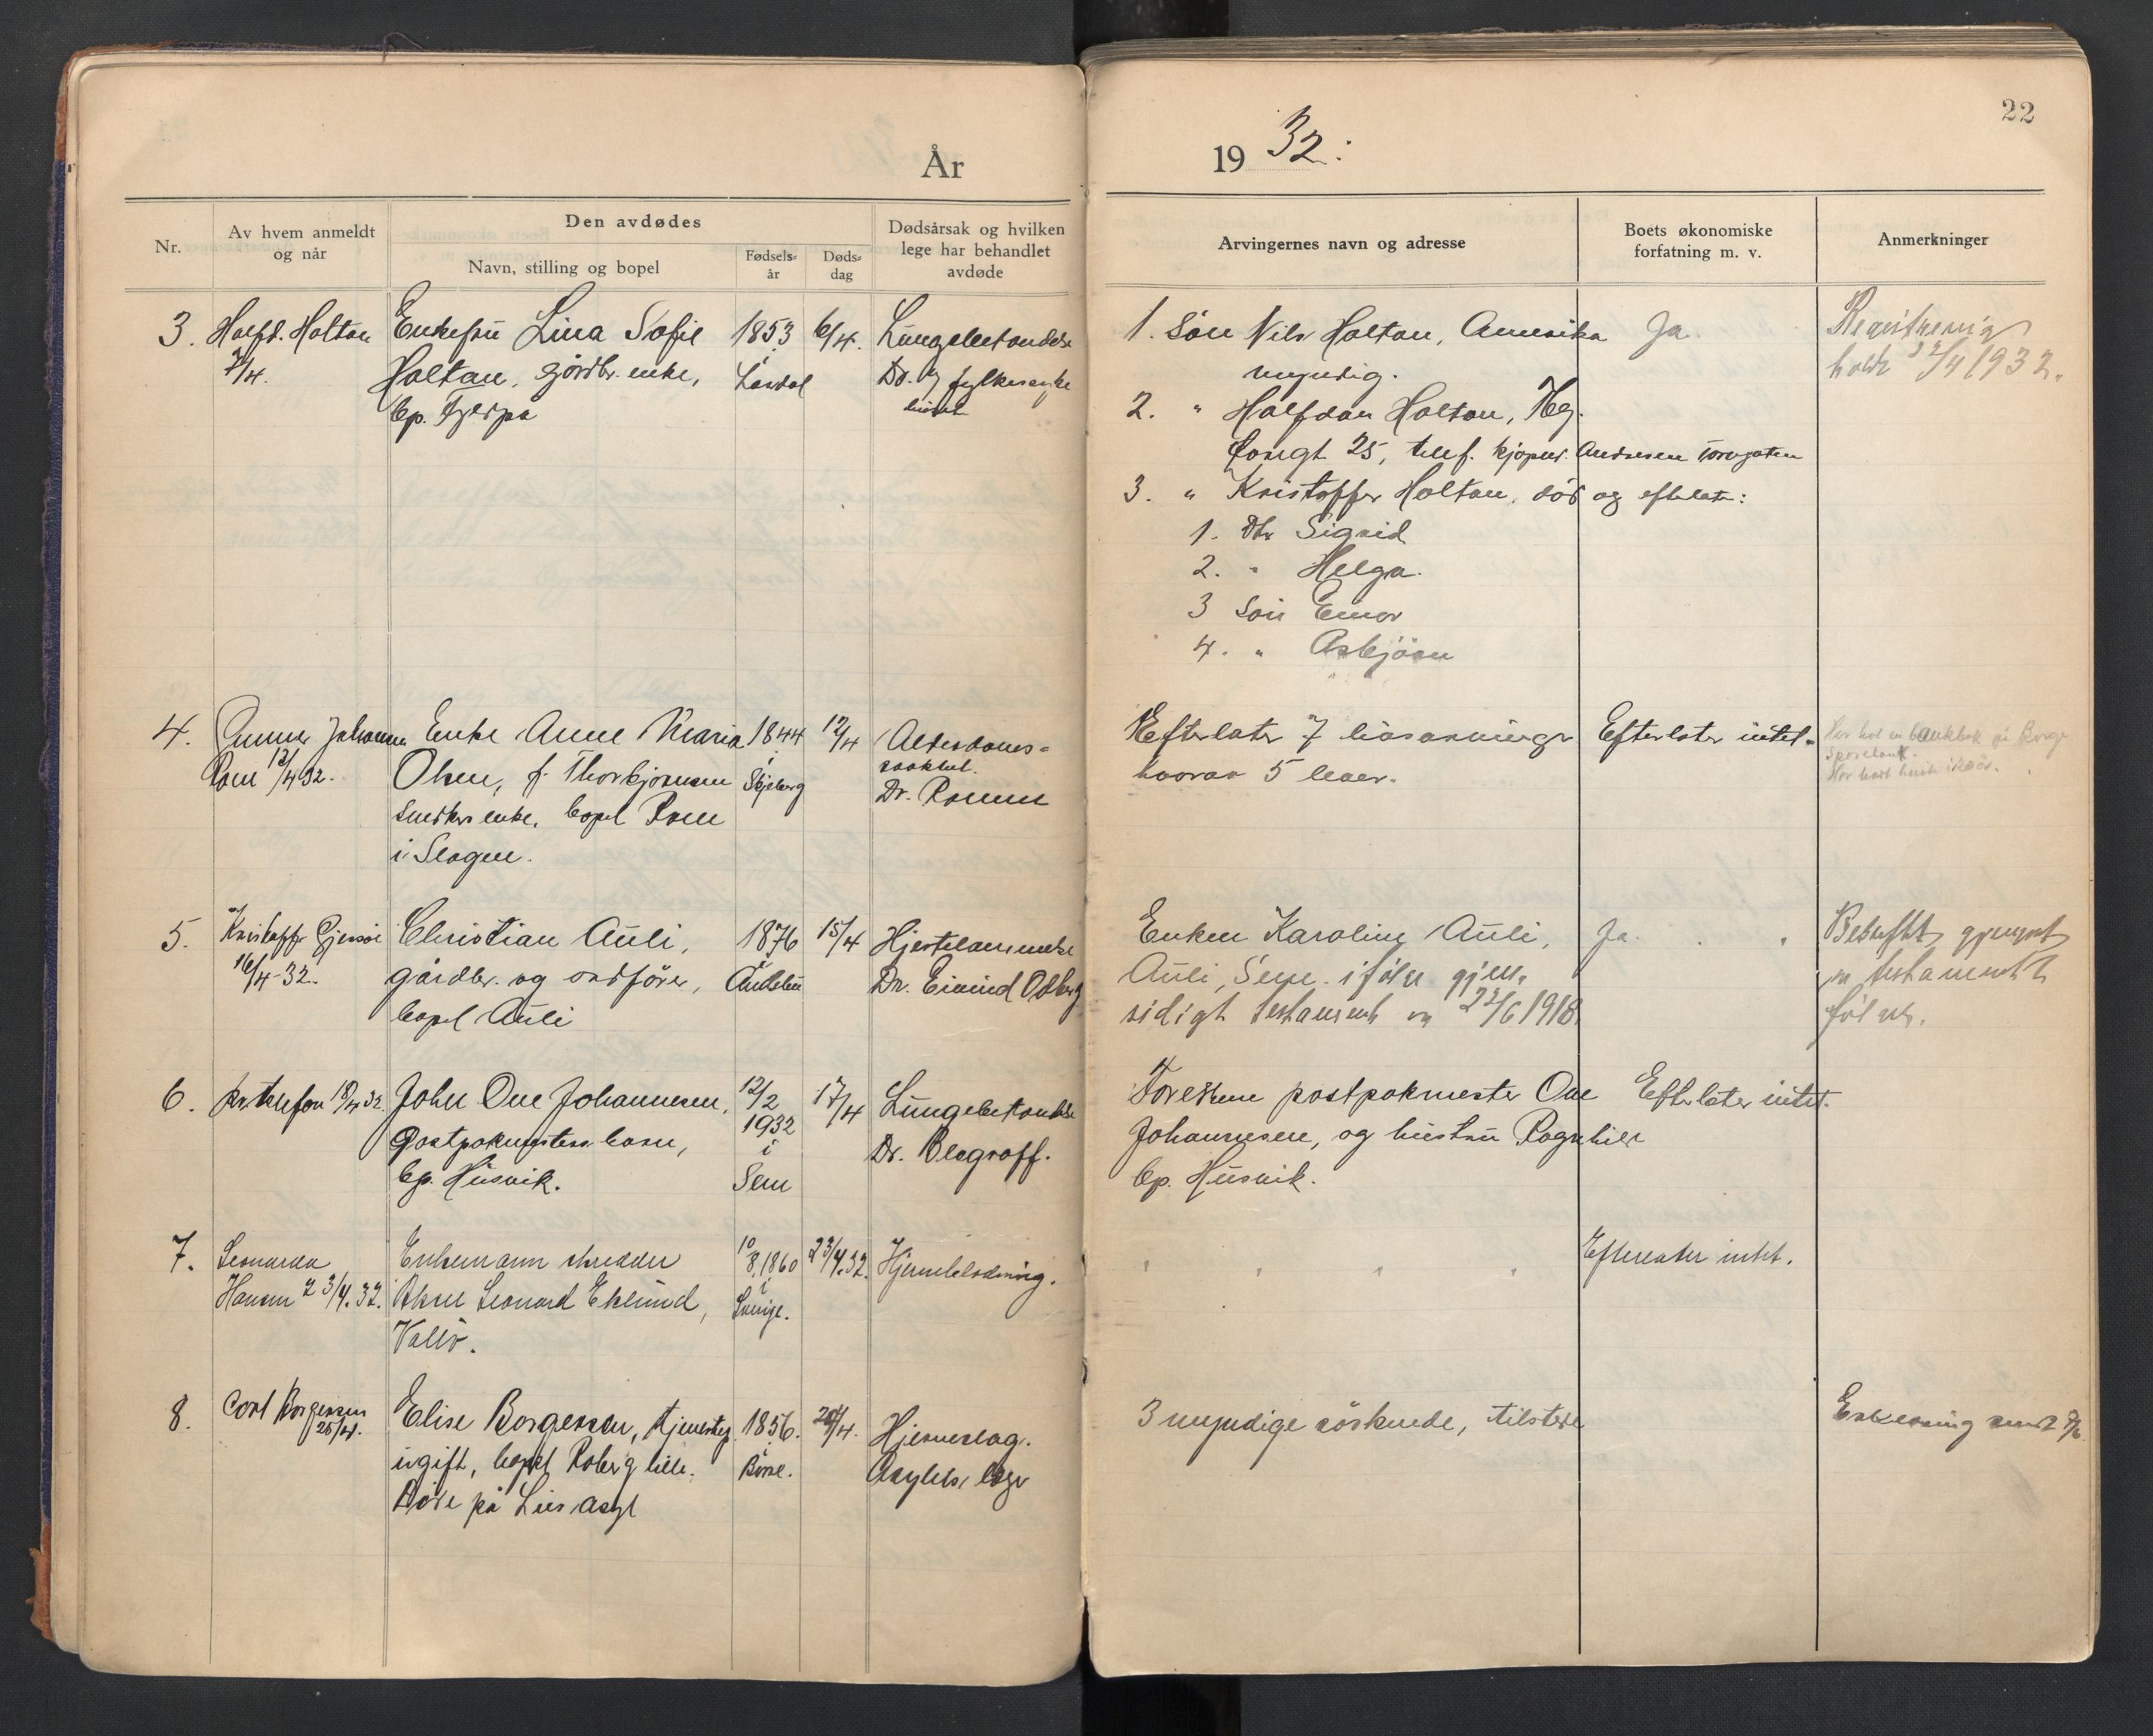 22
År
19 32.
Nr.
Av hvem anmeldt
og når
Den avdødes
Navn, stilling og bopel
Fødsels-
år
Døds-
dag
Dødsårsak og hvilken
lege har behandlet
avdøde
Arvingernes navn og adresse
Boets økonomiske
forfatning m. v.
Anmerkninger
3.
Halfd. Holtan
7/4.
Enkefru Lina Sofie
Holtan, gårdbr. enke,
bp.
1853
i
Lardal
6/4.
Lungebetendelse
Dr. fylkessyke
huset
1. Søn Nils Holtan, Amerika
myndig.
2. " Halfdan Holtan, Tbg.
25, telef. kjøpm. Andresen Torvgaten
3. " Kristoffer Holtan, död og efterlater:
1. Dtr Sigrid
2. " Helga.
3 Sön Einar
4. " Asbjörn
Ja.
Registrering
holdt 22/4 1932.
4.
Gunner Johannes
Rom 12/4 32.
Enke Anne Maria
Olsen, f. Thorbjørnsen
snedker enke, bopel Rom
i Slagen.
1844
i
Skjeberg
12/4
Alderdoms-
svakhet.
Dr. Romm
Efterlater 7 livsarvinger
hvorav 5 lever.
Efterlater intet.
Har hatt en bankbok på Borge
Sparebank.
5.
Kristoffer Gjersøe
16/4-32.
Christian Auli,
gårdbr. og ordförer,
bopel Auli
1876
i
Andebu
15/4
Hjertelammelse
Dr. Eivind Odberg
Enken Karoline Auli,
Auli, Sem. ifölge gjen-
sidigt testament av 22/6 1918.
Ja.
Bekreftet gjenpart
av testamentet
fölger.
6.
pr. telefon 18/4 32.
John Ove Johannesen,
Postpakmesters barn,
bp. Husvik.
12/2
1932
i
Sem
17/4
Lungebetendelse
Dr. Blegraff.
Foreldrene postpakmester Ove
Johannesen, og hustru Ragnhild
bp. Husvik.
Efterlater intet.
7.
Leonarda
Hansen 23/4.32.
Enkemann skredder
Aksel Leonard Eklund,
Vallö.
10
8.1860
i
Sverige.
23/4.32.
Hjerneblödning.
" " " "
Efterlater intet.
8.
Carl Borgersen
25/4.
Elise Borgersen, tjenestep.
ugift, bopel Roberg lille.
Döde på Lier asyl
1856.
i
Borre.
24/4.
Hjerneslag.
Asylets lege
3 myndige söskende, tilstede
Erklæring sendt